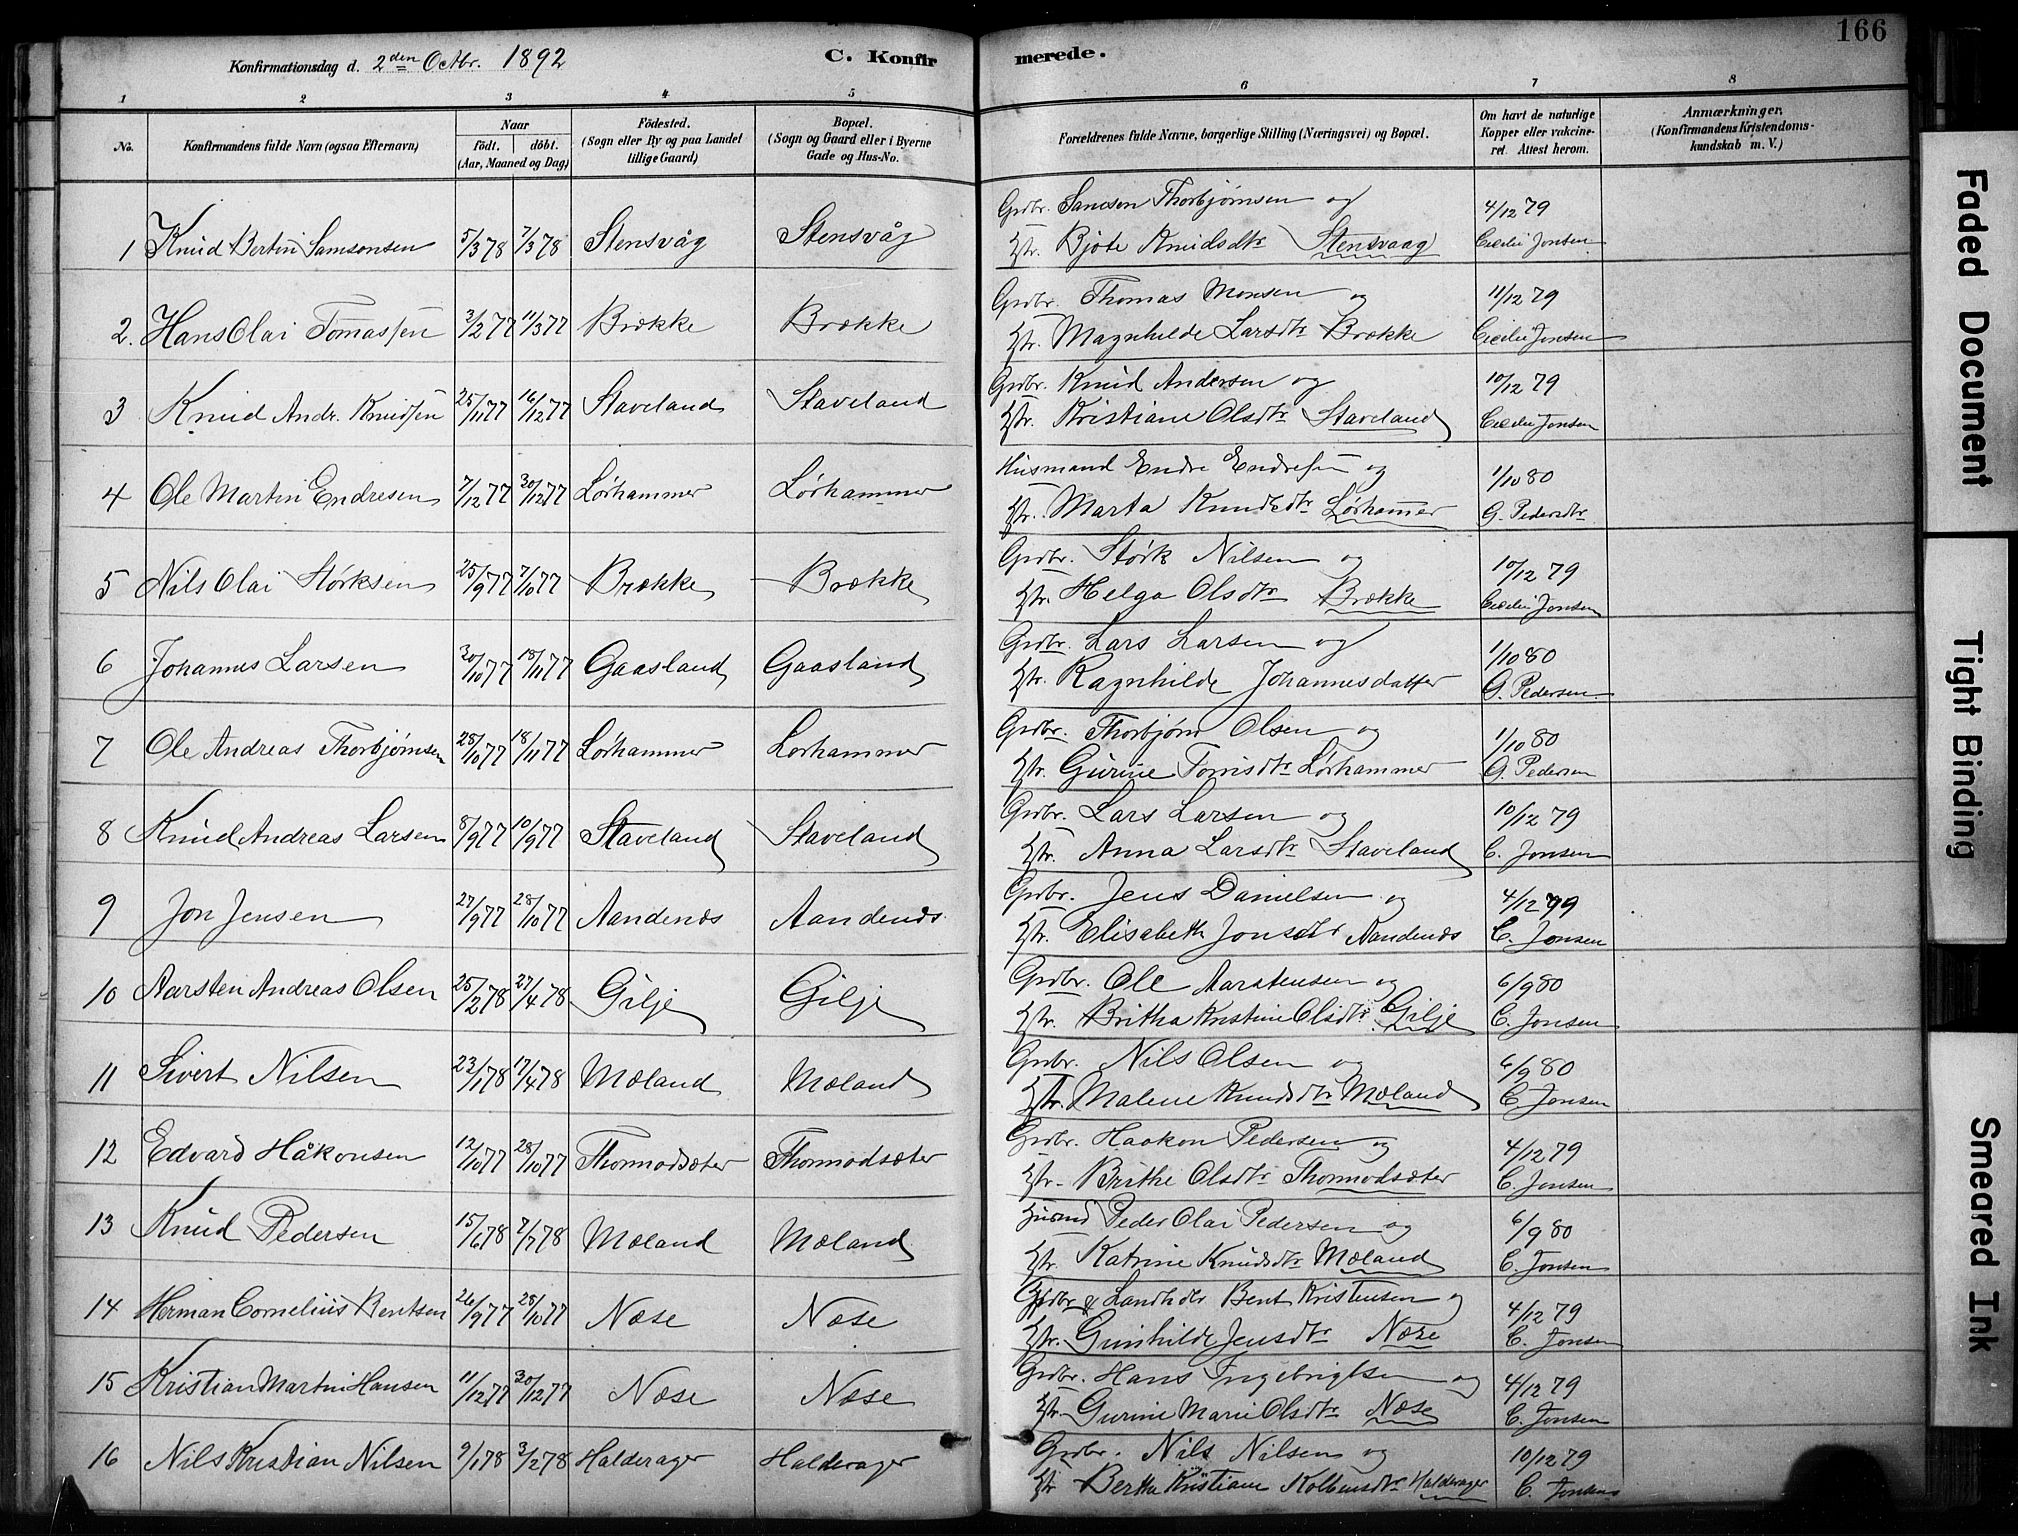 166
Konfirmationsdag d. 2den Octbr. 1892
C. Konfirmerede.
1 2 3 4 5 6 7 8
No. Konfirmandens fulde Navn (ogsaa Efternavn) Naar født. døbt. (Aar, Maaned og Dag) Fødested. (Sogn eller By og paa Landet tillige Gaard) Bopæl. (Sogn og Gaard eller i Byerne Gade og Hus-No. Forældrenes fulde Navne, borgerlige Stilling (Næringsvei) og Bopæl. Om havt de naturlige Kopper eller vakcineret. Attest herom. Anmærkninger. (Konfirmandens Kristendomskundskab m. V.)
1 Knud Bertin Samsonsen 5/3 78 7/3 78 Stensvåg Stensvåg Grdbr. Samson Thorbjørnsen og 4/12 79
Hstr. Bjøte Knudsdtr Stensvaag Cecelie Jonsen
2. Hans Olai Tomassen 3/2 77 11/3 77 Brække Brække Grdbr. Thomas Monsen og 11/12 79
Hstr. Magnhilde Larsdtr Brække Cecelie Jonsen
3 Knud Andr. Knudsen 25/11 77 16/12 77 Staveland Staveland Grdbr. Knud Andersen og 10/12 79
Hstr. Kristiane Olsdtr Staveland Cecelie Jonsen
4 Ole Martin Endresen 7/12 77 30/12 77 Lørhammer Lørhammer Husmand Endre Endresen og 1/10 80
Hstr. Marta Knudsdtr Lørhammer G. Pedersdtr
5 Nils Olai Størksen 25/9 77 7/10 77 Brække Brække Grdbr. Størk Nilsen og 10/12 79
Hstr. Helga Olsdtr Brække Cecelie Jonsen
6 Johannes Larsen 30/10 77 18/11 77 Gaasland Gaasland Grdbr. Lars Larsen og 1/10 80
Hstr. Ragnhilde Johannesdatter G. Pedersen
7 Ole Andreas Thorbjørnsen 28/10 77 18/11 77 Lørhammer Lørhammer Grdbr. Thorbjørn Olsen og 1/10 80
Hstr. Gurine Tomisdtr Lørhammer G. Pedersen
8 Knud Andreas Larsen 8/9 77 10/9 77 Staveland Staveland Grdbr. Lars Larsen og 10/12 79
Hstr. Anna Larsdtr Staveland C. Jonsen
9 Jon Jensen 27/9 77 28/10 77 Aandenæs Aandenæs Grdbr. Jens Danielsen og 4/12 79
Hstr. Elisabeth Jonsdtr Aandenæs C. Jonsen
10 Aarsten Andreas Olsen 25/2 78 27/4 78 Gilje Gilje Grdbr. Ole Aarstensen og 6/9 80
Hstr. Britha Kristine Olsdtr Gilje C. Jonsen
11 Sivert Nilsen 23/1 78 17/4 78 Mæland Mæland Grdbr. Nils Olsen og 6/9 80
Hstr. Malene Knudsdtr Mæland C. Jonsen
12 Edvard Håkonsen 12/10 77 28/10 77 Thormodsæter Thormodsæter Grdbr. Haakon Pedersen og 4/12 79
Hstr. Brithe Olsdtr Thormodsæter C. Jonsen
13 Knud Pedersen 15/6 78 7/7 78 Mæland Mæland Husmd Peder Olai Pedersen og 6/9 80
Hstr. Katrine Knudsdtr Mæland C. Jonsen
14 Herman Cornelius Bentsen 26/9 77 28/10 77 Næse Næse Grdbr & Landhdlr Bent Kristensen og 4/12 79
Hstr. Gunhilde Jensdtr Næse C. Jonsen
15 Kristian Martin Hansen 11/12 77 30/12 77 Næse Næse Grdbr. Hans Ingebrigtsen og 4/12 79
Hstr. Gurine Marie Olsdtr Næse C. Jonsen
16 Nils Kristian Nilsen 9/1 78 3/2 78 Halderager Halderager Grdbr. Nils Nilsen og 10/12 79
Hstr Bertha Kristiane Kolbensdtr Halderager C. Jonsen
Faded Document
Tight Binding
Smeared Ink